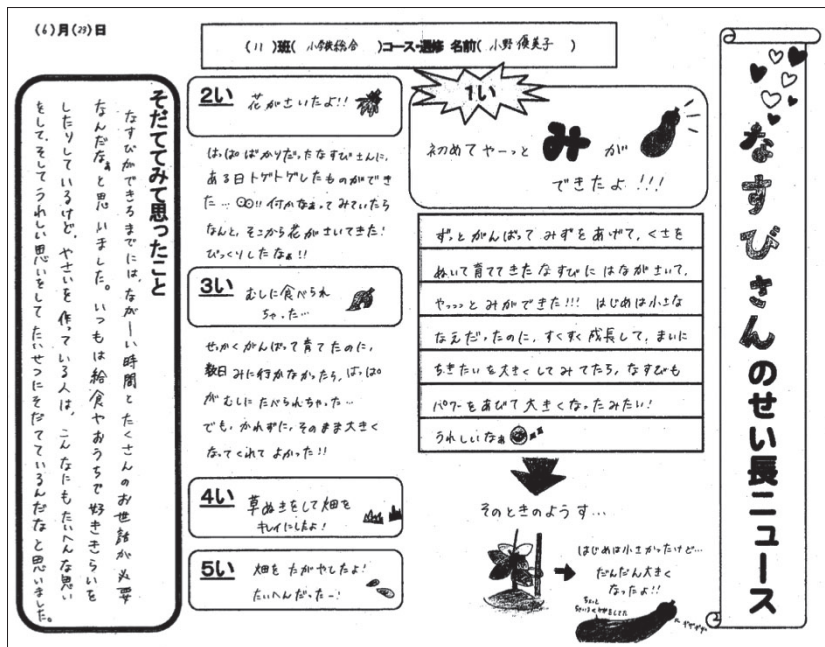 (6)月(23)日
(11)班(小学校総合)コース・選修 名前(小野優美子)
なすびさんのせい長ニュース
1い
初めてやーっと みが
できたよ!!!
ずっとがんばって みずをあげて、くさを
ぬいて育ててきたなすびに はながさいて、
やっっっと みができた!!! はじめは小さな
なえだったのに、すくすく成長して、まいに
ちきたいを大きくしてみてたら、なすびも
パワーをあびて大きくなったみたい!
うれしいなぁ
そのときのようす…
はじめは小さかったけど…
だんだん大きく
なったよ!!
2い
花がさいたよ!!
はっぱばかりだったなすびさんに、
ある日トゲトゲしたものができ
た…!! 何かなぁってみていたら
なんと、そこから花がさいてきた!
びっくりしたなぁ!!
3い
むしに食べられ
ちゃった…
せっかくがんばって育てたのに、
数日みに行かなかったら、はっぱ
がむしにたべられちゃった…
でも、かれずに、そのまま大きく
なってくれてよかった!!
4い
草ぬきをして畑を
キレイにしたよ!
5い
畑をたがやしたよ!
たいへんだったー!
そだててみて思ったこと
なすびができるまでには、ながーい時間とたくさんのお世話が必要
なんだなぁと思いました。いつもは給食やおうちで好ききらいを
したりしているけど、やさいを作っている人は、こんなにもたいへんな思い
をして、そしてうれしい思いをして たいせつにそだてているんだなと思いました。